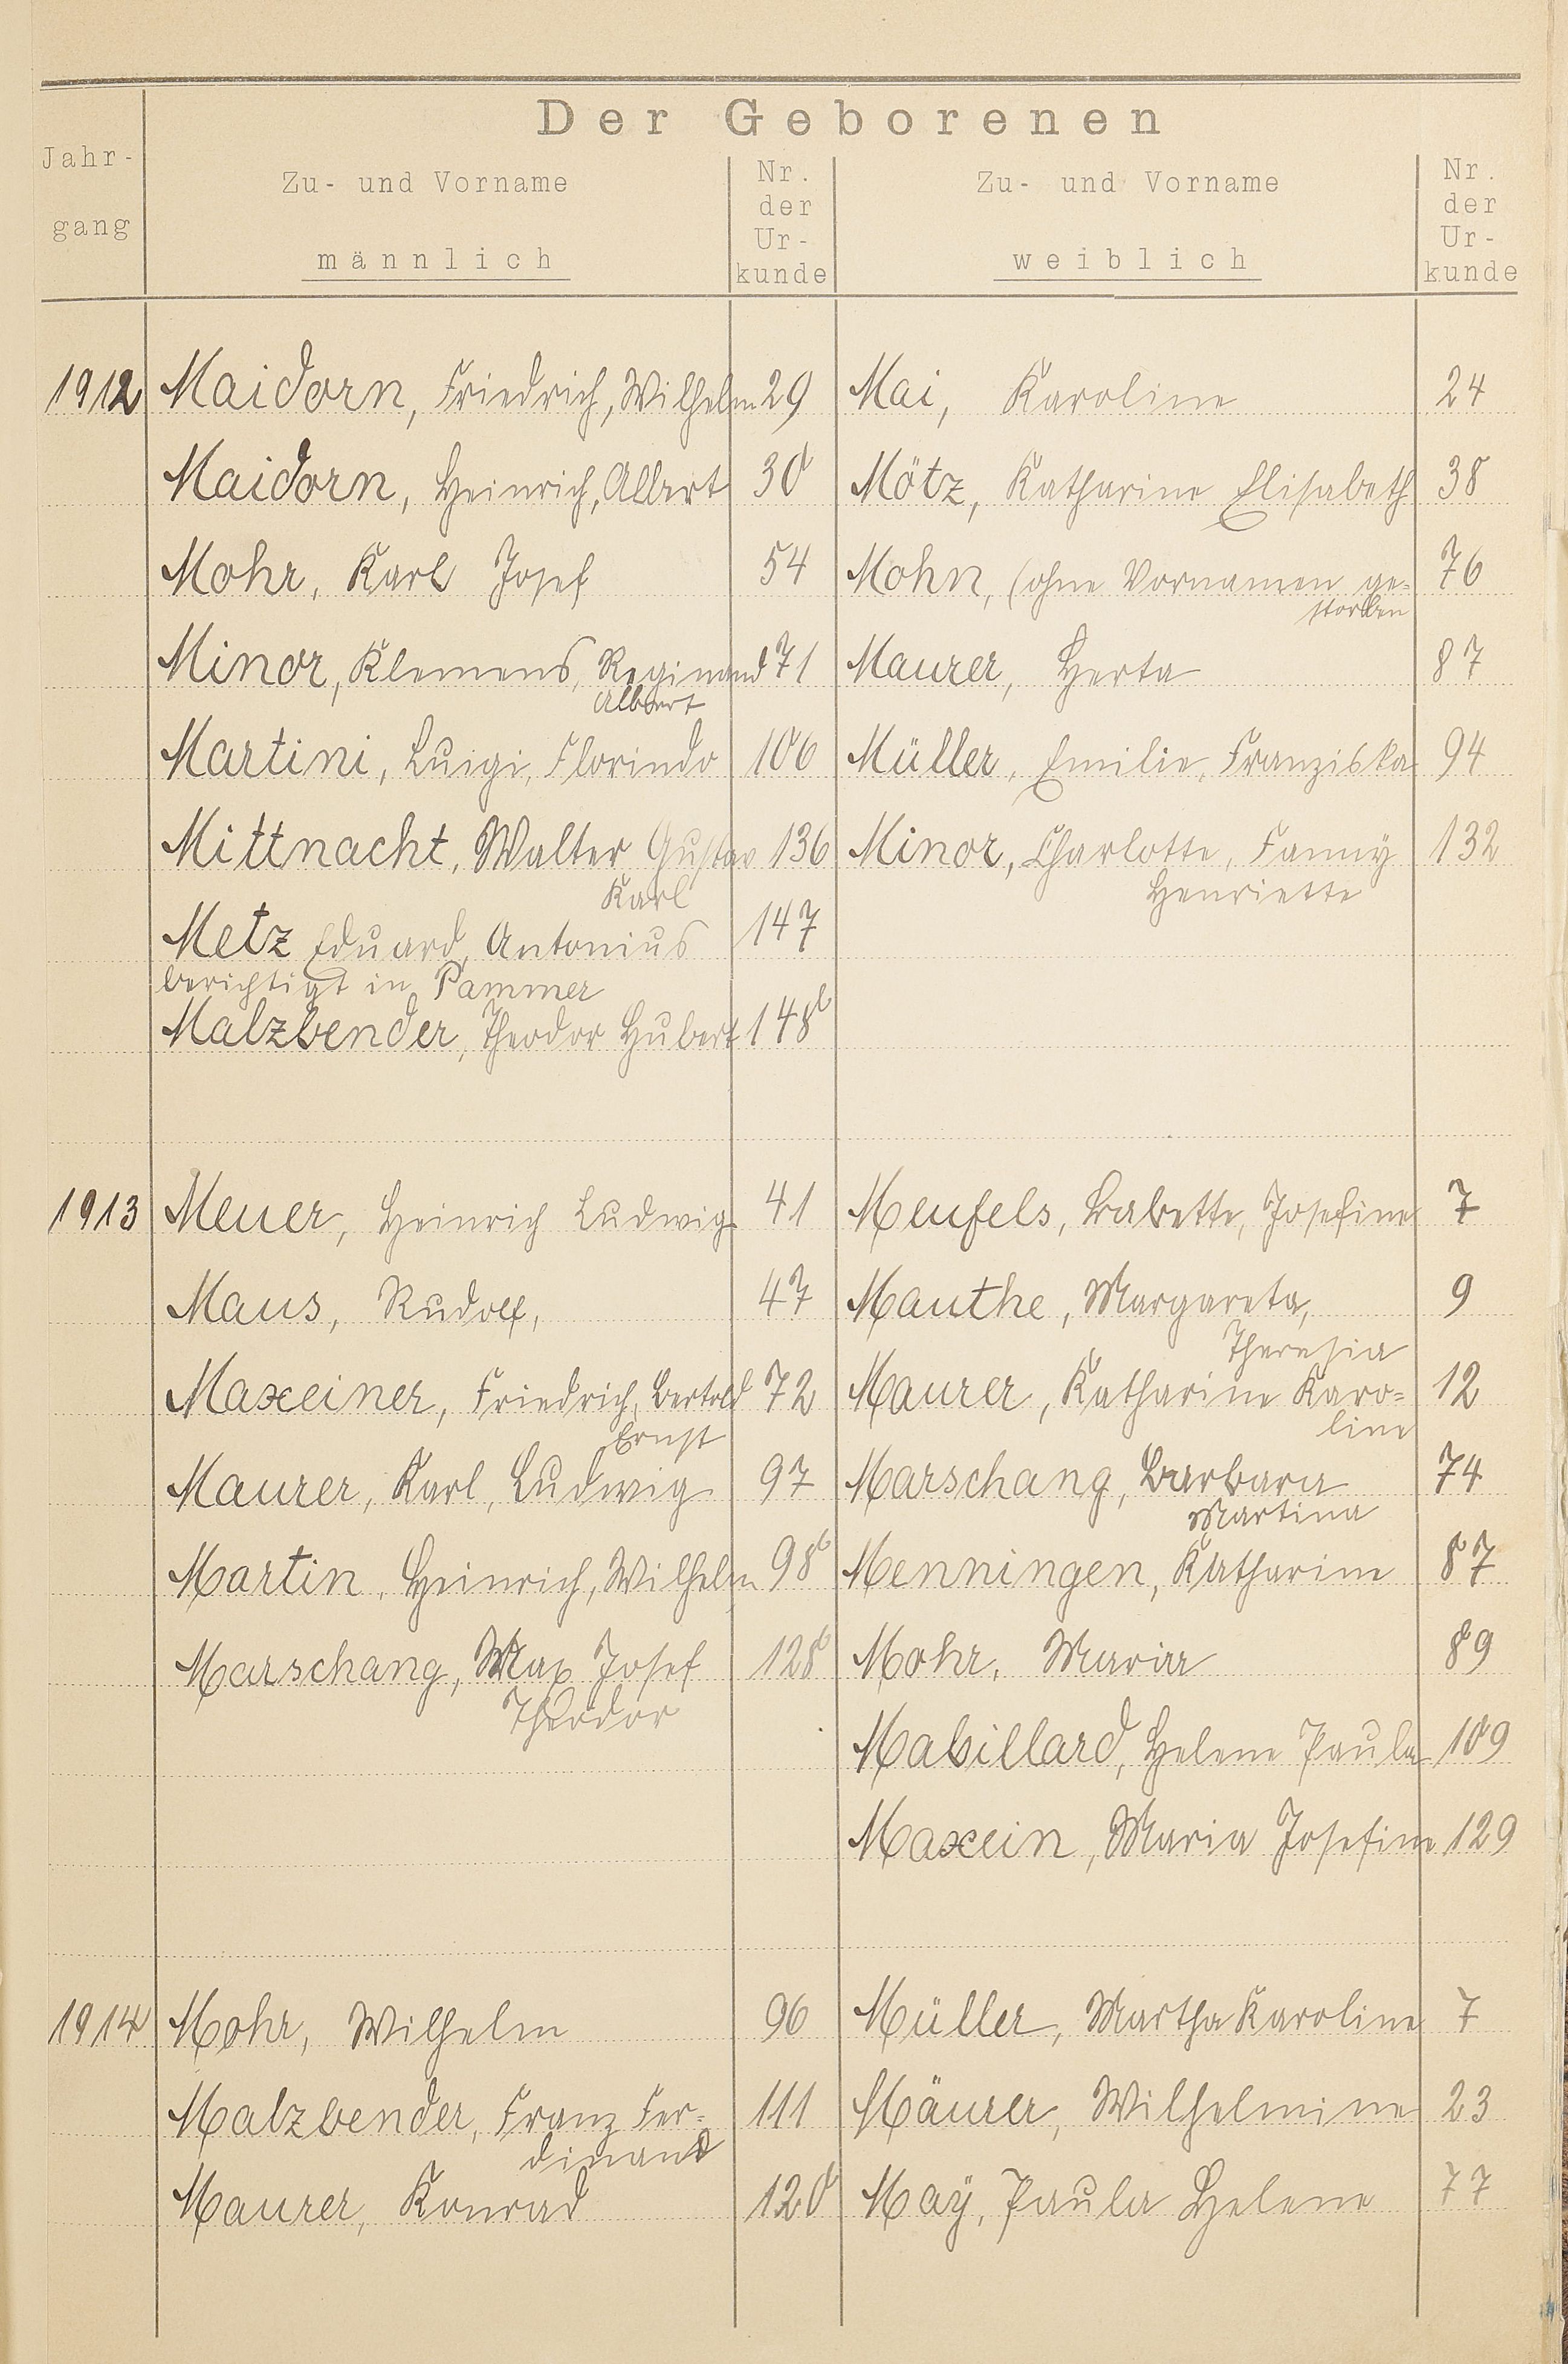 Der Geborenen
Jahr-
gang
Zu- und Vorname
männlich
Nr.
der
Ur-
kunde
Zu- und Vorname
weiblich
Nr.
der
Ur-
kunde
1912 Maidorn, Friedrich, Wilhelm 29 Mai, Karoline 24
Maidorn, Heinrich, Albert 30 Mötz, Katharine Elisabeth 38
Mohr, Karl Josef 54 Mohn, (ohne Vornamen ge-
storben 76
Minor, Klemens, Reginand
Albert 71 Maurer, Herta 87
Martini, Luigi, Florindo 106 Müller, Emilie, Franziska 94
Mittnacht, Walter Gustav
Karl 136 Minor, Charlotte, Fanny
Henriette 132
Metz Eduard, Antonius 147
berichtigt in Pammer
Malzbender, Theodor Hubert 148
1913 Meuer, Heinrich Ludwig 41 Meufels, Babette, Josefine 7
Maus, Rudolf, 47 Mauthe, Margareta,
Theresia 9
Maxeiner, Friedrich, Bertold
Ernst 72 Maurer, Katharine Karo=
line 12
Maurer, Karl, Ludwig 97 Marschang, Barbara
Martina 74
Martin, Heinrich, Wilhelm 98 Menningen, Katharine 87
Marschang, Max Josef
Theodor 128 Mohr, Maria 89
Mabillard, Helene Paula 109
Maxein, Maria Josefine 129
1914 Mohr, Wilhelm 96 Müller, Martha Karoline 7
Malzbender, Franz Fer=
dinand 111 Mäurer, Wilhelmine 23
Maurer, Konrad 120 Maÿ, Paula Helene 77